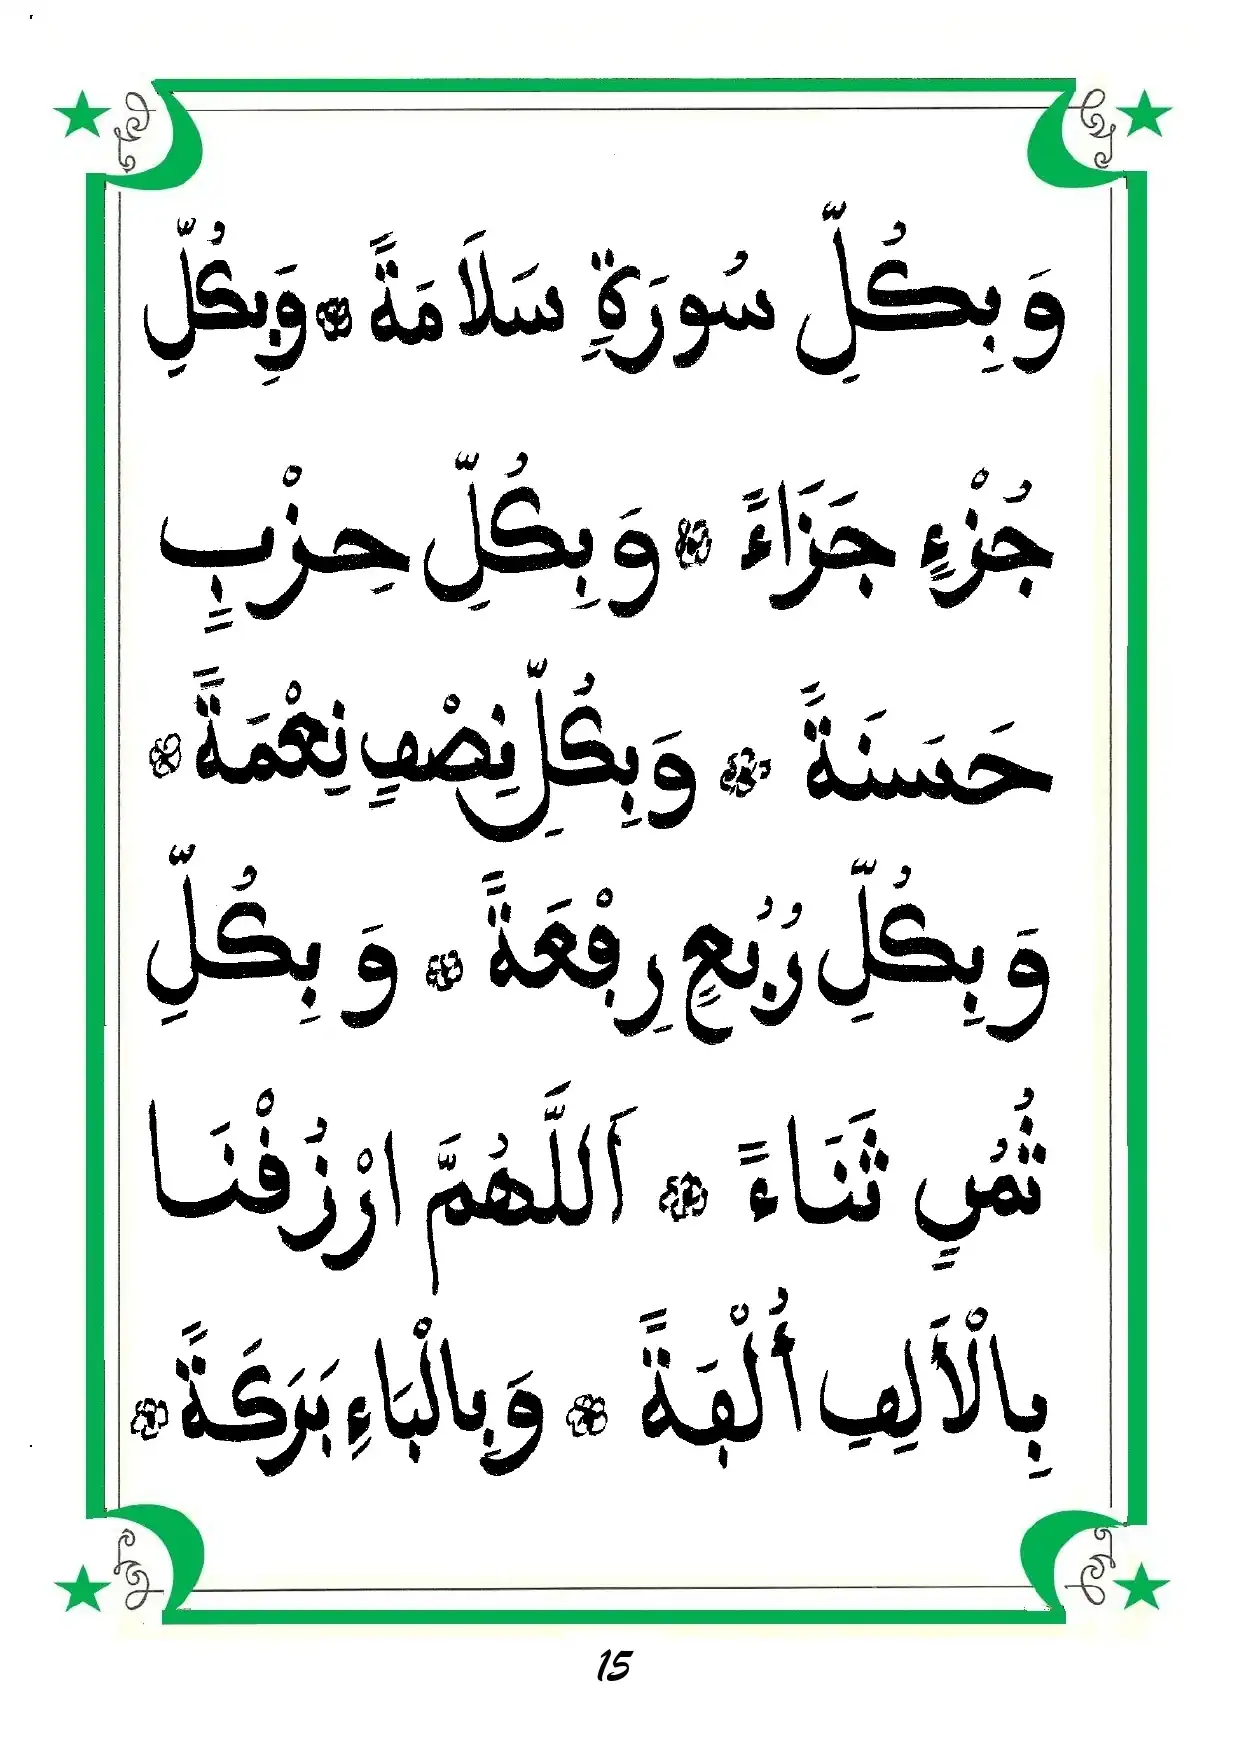 وَبِكُلِّ سُورَةٍ سَلَامَةً ۞ وَبِكُلِّ
جُزْءٍ جَزَاءً ۞ وَبِكُلِّ حِزْبٍ
حَسَنَةً ۞ وَبِكُلِّ نِصْفٍ نِعْمَةً ۞
وَبِكُلِّ رُبُعٍ رِفْعَةً ۞ وَبِكُلِّ
ثُمُنٍ ثَنَاءً ۞ اَللَّهُمَّ ارْزُقْنَا
بِالْأَلِفِ أُلْفَةً ۞ وَبِالْبَاءِ بَرَكَةً ۞
15